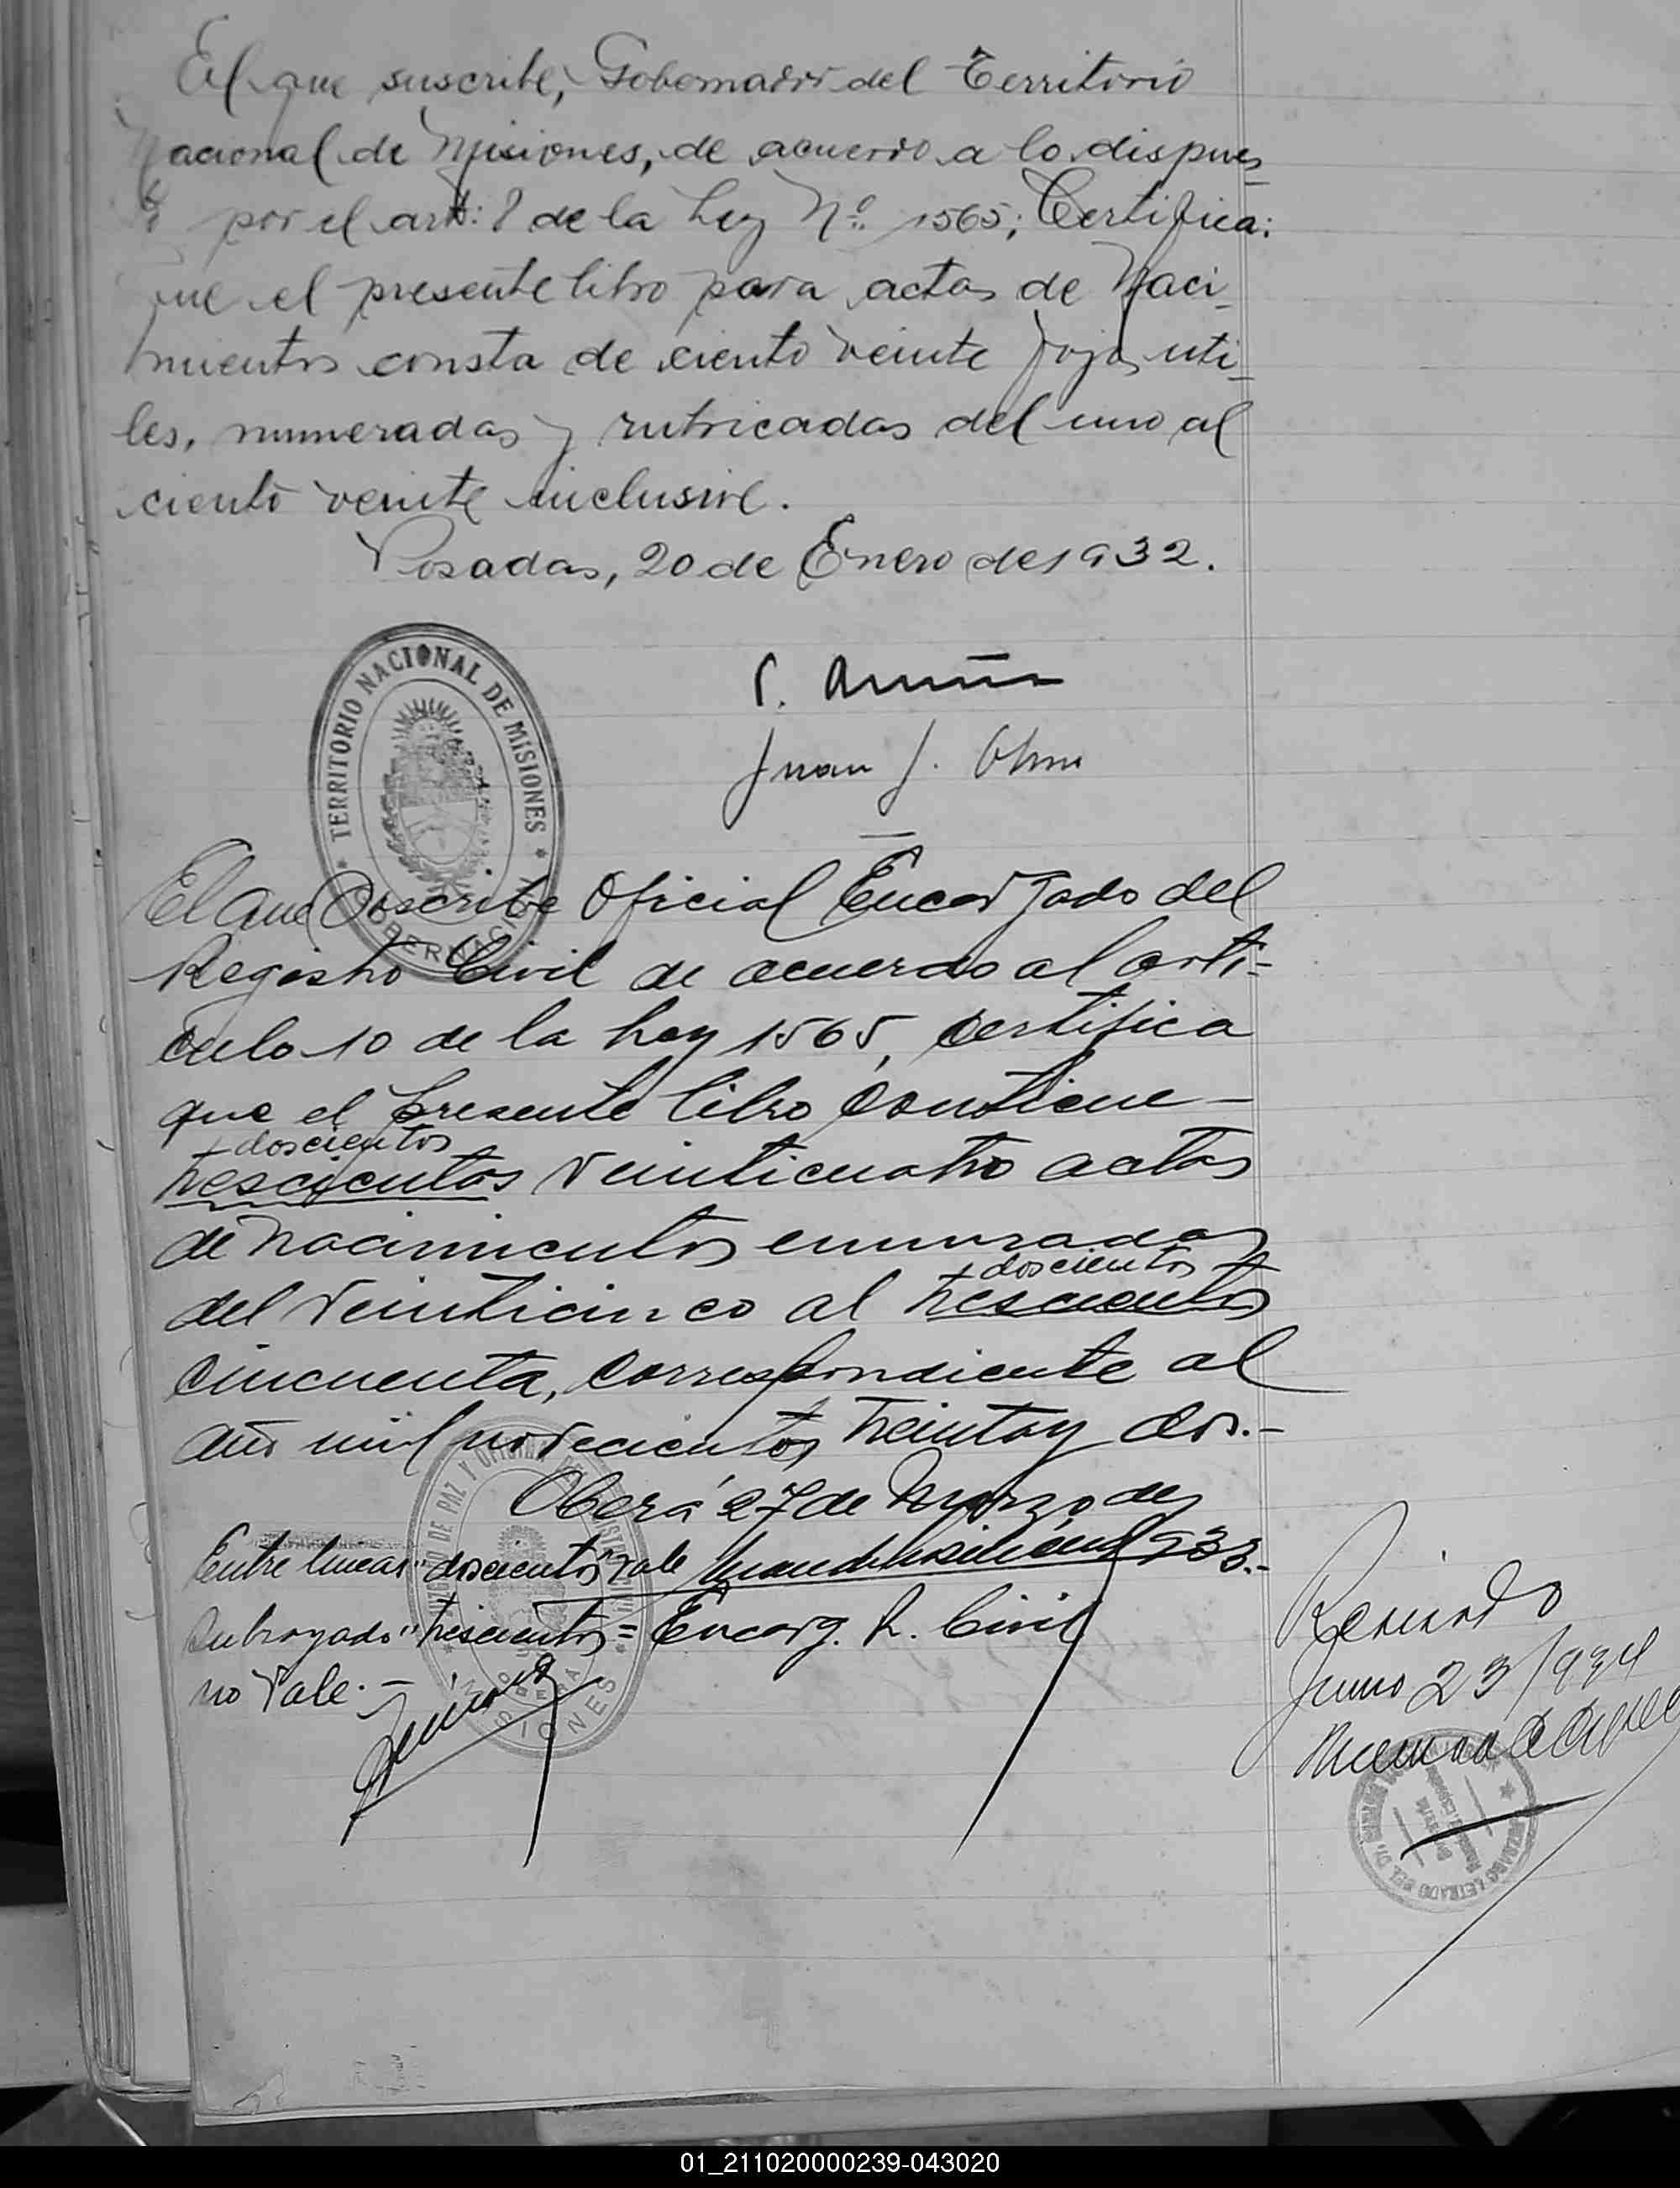 El que suscribe, Gobernador del Territorio
Nacional de Misiones, de acuerdo a lo dispues_
to por el art: 8 de la Ley Nº 1565; Certifica:
que el presente libro para actas de Naci_
mientos consta de ciento veinte fojas uti_
les, numeradas y rubricadas del uno al
ciento veinte inclusive.
Posadas, 20 de Enero de 1932.
TERRITORIO NACIONAL DE MISIONES
GOBERNACION
Juan J.
El que suscribe Oficial Encargado del
Registro Civil de acuerdo al arti-
culo 10 de la Ley 1565, certifica
que el presente libro contiene -
doscientos
trescientos veinticuatro actas
de Nacimientos enumradas
doscientos
del veinticinco al trescientos
cincuenta, correspondiente al
año mil novecientos treinta y dos.-
Oberá 27 de Marzo de
Entre lineas "doscientos" vale 933.-
Subrayado "trescientos" = Encarg. R. Civil
no vale. -
JUZGADO DE PAZ Y
OBERA
MISIONES
Revisado
Junio 23/934
JUZGADO LETRADO DEL
01_211020000239-043020